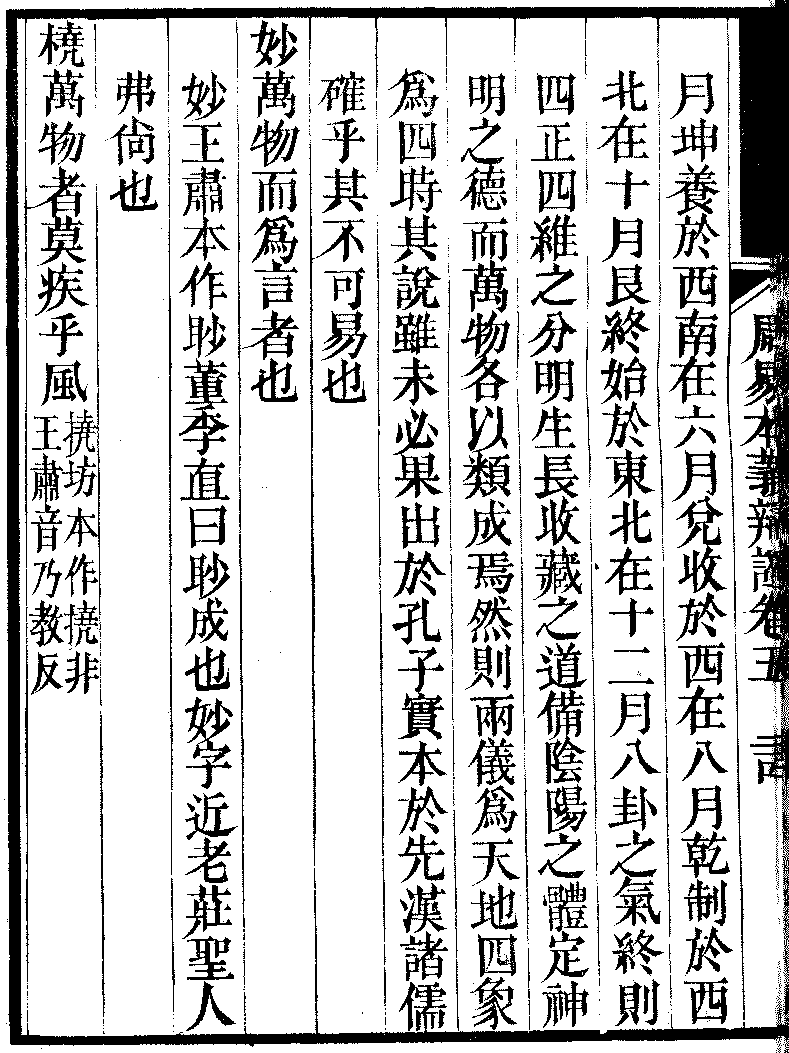 周易本義辨證卷五
月坤養於西南在六月兌收於西在八月乾制於西
北在十月艮終始於東北在十二月八卦之氣終則
四正四維之分明生長收藏之道備陰陽之體定神
明之德而萬物各以類成焉然則兩儀爲天地四象
爲四時其說雖未必果出於孔子實本於先漢諸儒
確乎其不可易也
妙萬物而爲言者也
妙王肅本作眇董季直曰眇成也妙字近老莊聖人
弗尙也
橈萬物者莫疾乎風
撓坊本作撓非
王肅音乃教反